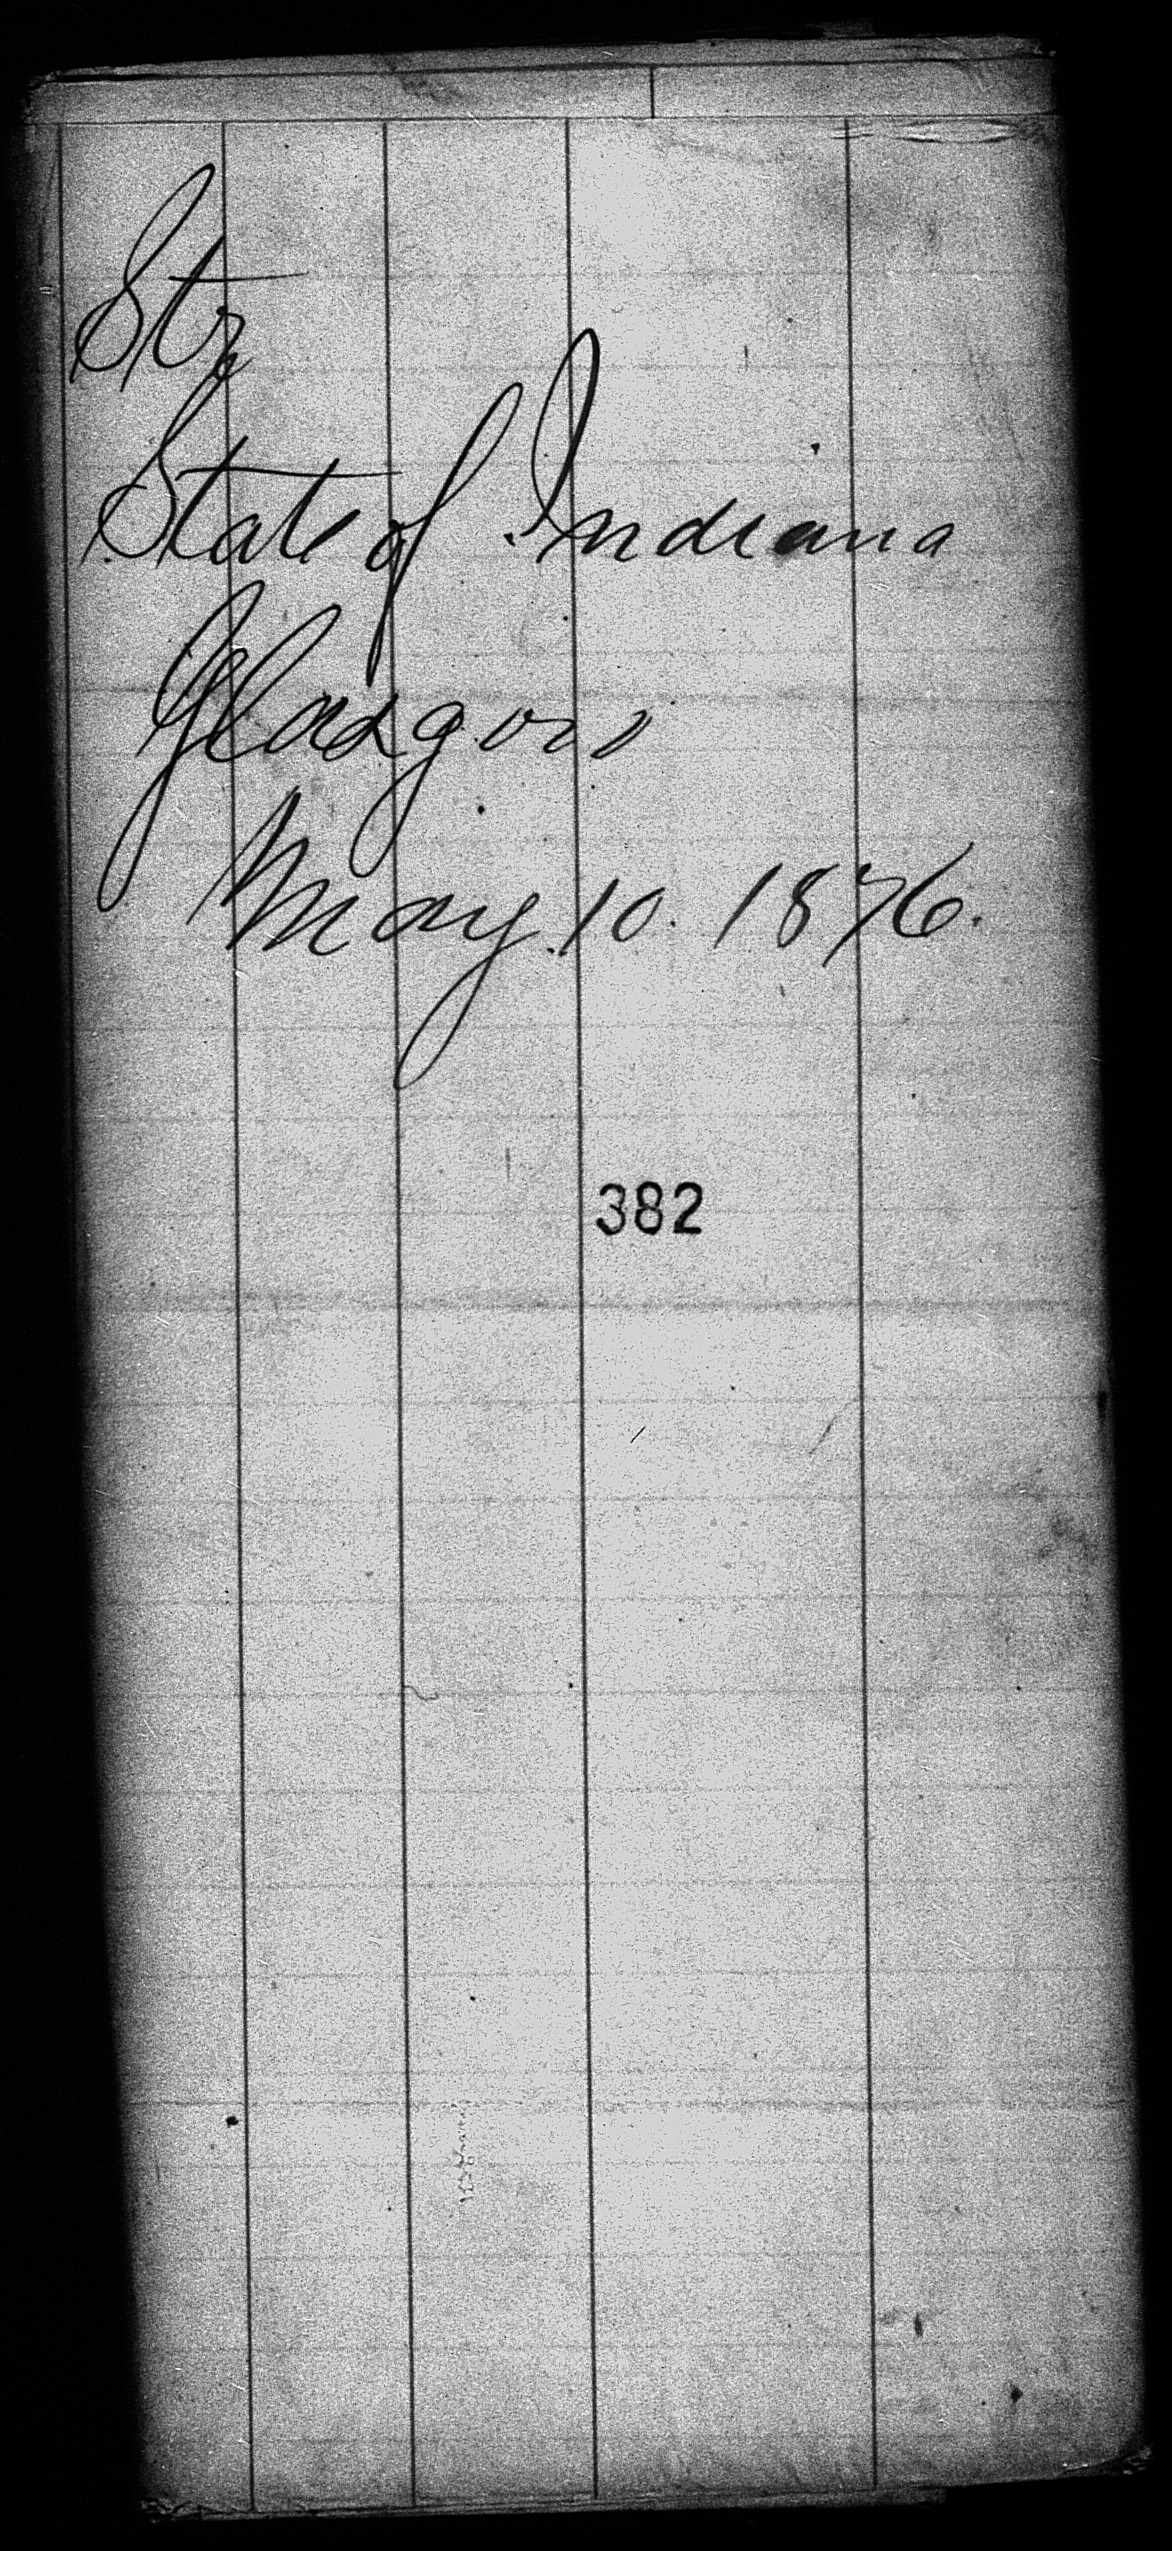 Str
State of Indiana
Glasgow
May. 10. 1876.
382